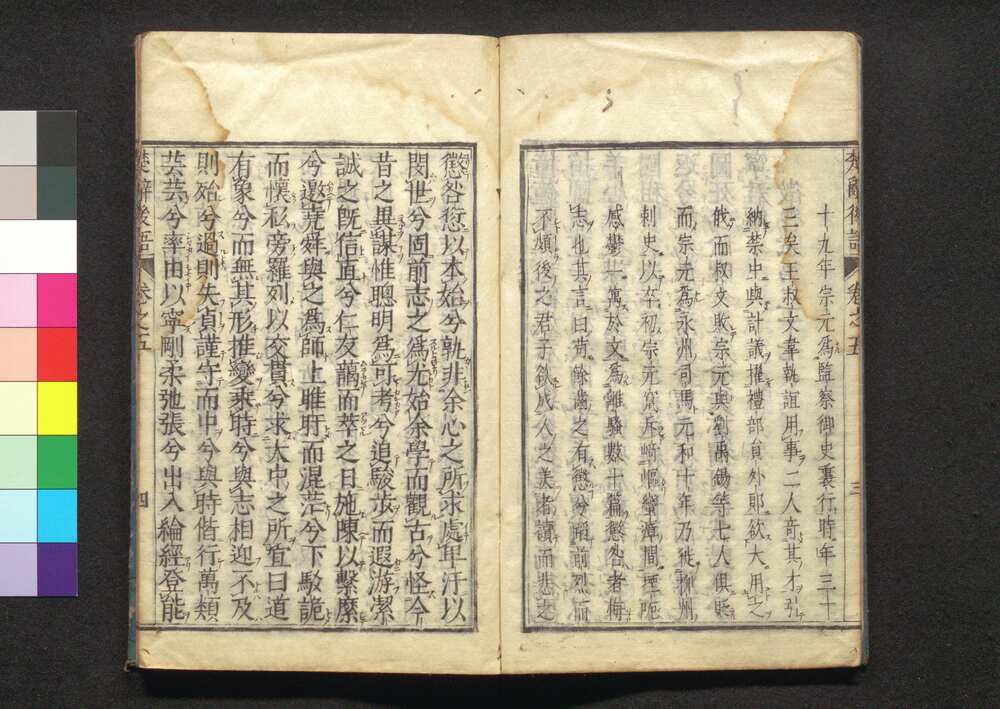 楚辭後語 卷之五 三
十九年宗元爲監察御史裏行時年三十
三矣王叔文韋執誼用事二人奇其才引
納禁中與計議擢禮部員外郎欲大用之
俄而叔文敗宗元與劉禹錫等七人俱貶
而宗元爲永州司馬元和十年乃徙柳州
刺史以卒初宗元竄斥崎嶇蠻瘴間堙阨
感鬱一寓於文爲離騷數十篇懲咎者悔
志也其言曰苟餘齒之有懲兮蹈前烈而
不頗後之君子欲成人之美者讀而悲之
懲咎愆以本始兮孰非余心之所求處卑汙以
閔世兮固前志之爲尤始余學而觀古兮怪今
昔之異謀惟聰明爲可考兮追駿步而遐游潔
誠之既信直兮仁友藹而萃之日施陳以繫縻
兮邀堯舜與之爲師上睢盱而混茫兮下駁詭
而懷私旁羅列以交貫兮求大中之所宜曰道
有象兮而無其形推變乘時兮與志相迎不及
則殆兮過則失貞謹守而中兮與時偕行萬類
芸芸兮率由以寧剛柔弛張兮出入綸經登能
楚辭後語 卷之五 四